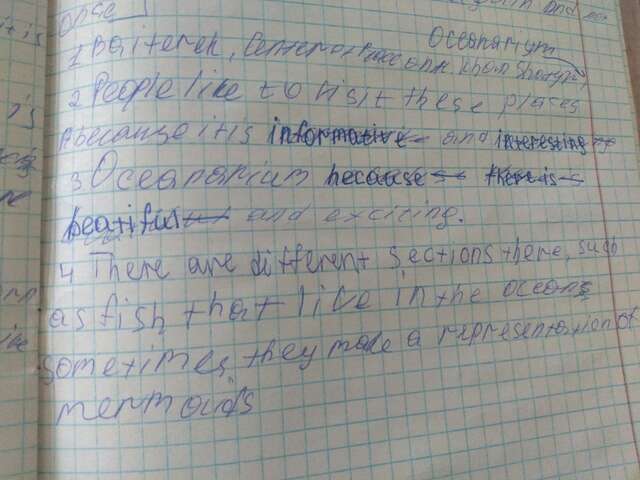 once
Oceanarium
1 Baiterek, Center
2 People like to visit these places
because it is informative and interesting
3 Oceanarium because there is
beatiful and exciting.
4 There are different sections there, such
as fish that live in the oceans
sometimes they make a representation of
mermaids